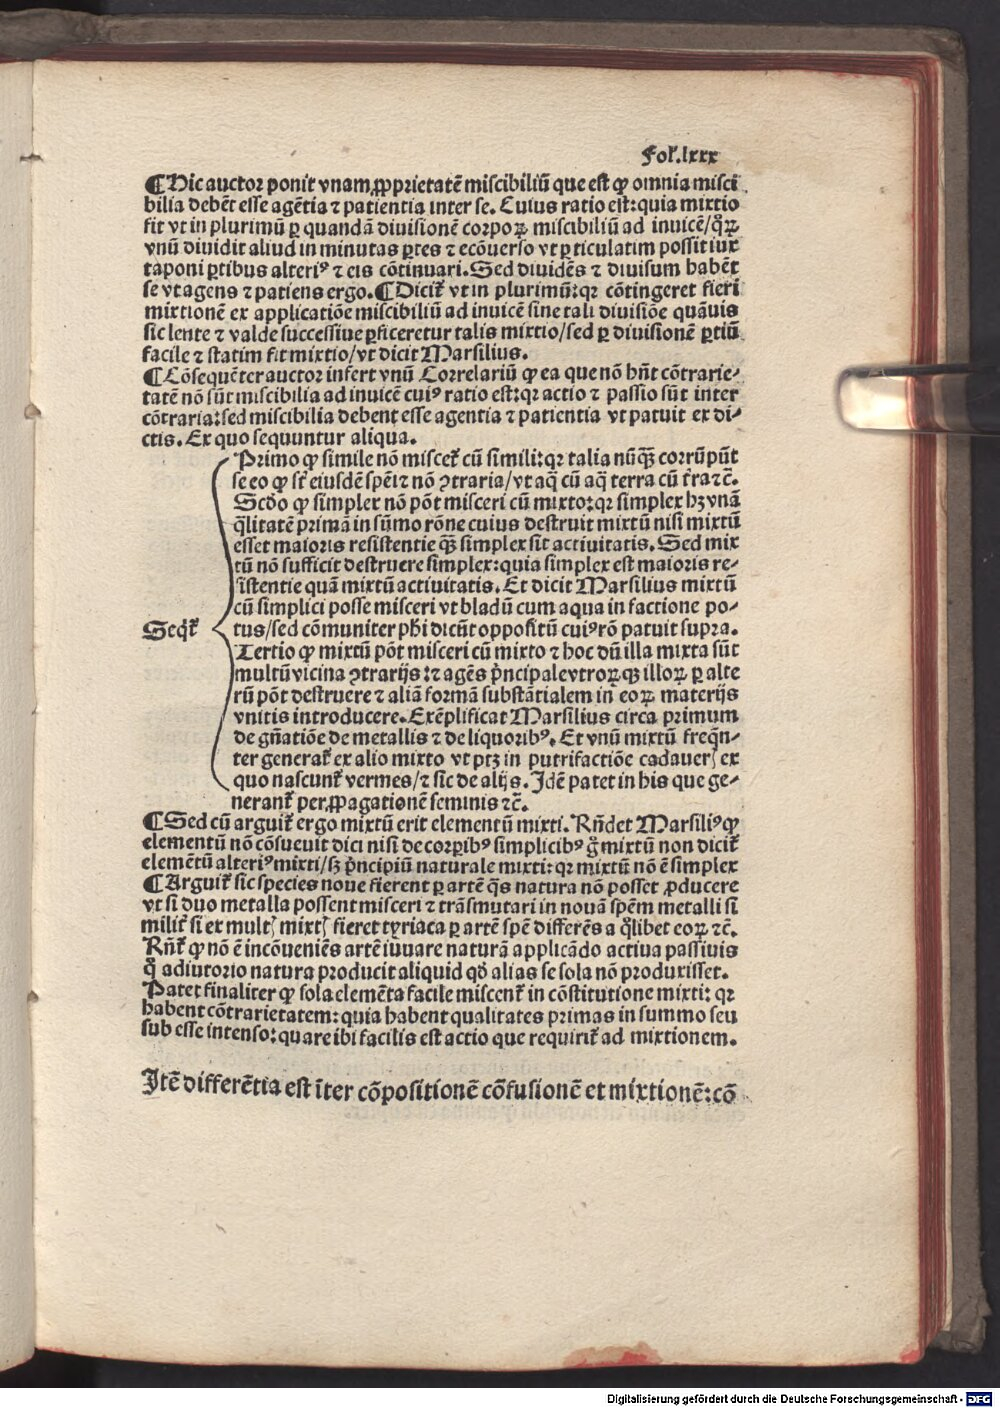 Fol̄.lxxx
¶Hic auctor ponit vnam ꝓprietatē miscibiliū que est ꝙ omnia misci
bilia debēt esse agētia ⁊ patientia inter se. Cuius ratio est: quia mixtio
fit vt in plurimū ꝑ quandā diuisionē corpoꝝ miscibiliū ad inuicē/
vnū diuidit aliud in minutas ꝑtes ⁊ ecōuerso vt ꝑticulatim possit iux
taponi ꝑtibus alteriꝰ ⁊ eis cōtinuari. Sed diuidēs ⁊ diuisum habēt
se vt agens ⁊ patiens ergo. ¶Dicit̄ vt in plurimū: qꝛ cōtingeret fieri
mixtionē ex applicatiōe miscibiliū ad inuicē sine tali diuisiōe quāuis
sic lente ⁊ valde successiue ꝑficeretur talis mixtio/sed ꝑ diuisionē ꝑtiū
facile ⁊ statim fit mixtio/vt dicit Marsilius.
¶Cōsequēter auctor infert vnū Correlariū ꝙ ea que nō hn̄t cōtrarie-
tatē nō sūt miscibilia ad inuicē cuiꝰ ratio est: qꝛ actio ⁊ passio sūt inter
cōtraria: sed miscibilia debent esse agentia ⁊ patientia vt patuit ex di-
ctis. Ex quo sequuntur aliqua.
Primo ꝙ simile nō miscet̄ cū simili: qꝛ talia nūꝗ̄ corrūpūt
se eo ꝙ st̄ eiusdē spēi ⁊ nō ꝯtraria/vt aq̄ cū aq̄ terra cū t̄ra ⁊c̄.
Scd̄o ꝙ simplex nō pōt misceri cū mixto: qꝛ simplex hꝫ vnā
q̄litatē primā in sūmo rōne cuius destruit mixtū nisi mixtū
esset maioris resistentie ꝗ̄ simplex sit actiuitatis. Sed mix
tū nō sufficit destruere simplex: quia simplex est maioris re-
sistentie quā mixtū actiuitatis. Et dicit Marsilius mixtū
cū simplici posse misceri vt bladū cum aqua in factione po-
Seqūt̄ tus/sed cōmuniter ph̄i dicūt oppositū cuiꝰ rō patuit supra.
Tertio ꝙ mixtū pōt misceri cū mixto ⁊ hoc dū illa mixta sūt
multū vicina ꝯtrarijs: ⁊ agēs p̄ncipale vtroꝝqꝫ illoꝝ ꝑ alte
rū pōt destruere ⁊ aliā formā substātialem in eoꝝ materijs
vnitis introducere. Exēplificat Marsilius circa primum
de gn̄atiōe de metallis ⁊ de liquoribꝰ. Et vnū mixtū freq̄n-
ter generat̄ ex alio mixto vt ptꝫ in putrifactiōe cadauerꝭ ex
quo nascunt̄ vermes/⁊ sic de alijs. Idē patet in his que ge-
nerant̄ per ꝓpagationē seminis ⁊c̄.
¶Sed cū arguit̄ ergo mixtū erit elementū mixti. Rn̄det Marsiliꝰ ꝙ
elementū nō cōsueuit dici nisi de corꝑibꝰ simplicibꝰ gͦ mixtū non dicit̄
elemētū alteriꝰ mixti/sꝫ p̄ncipiū naturale mixti: qꝛ mixtū nō ē simplex
¶Arguit̄ sic species noue fierent ꝑ artē q̄s natura nō posset ꝓducere
vt si duo metalla possent misceri ⁊ trāsmutari in nouā spēm metalli si
milit̄ si ex multꝭ mixtꝭ fieret tyriaca ꝑ artē spē differēs a qͦlibet eoꝝ ⁊c̄.
Rn̄t̄ ꝙ nō ē incōueniēs artē iuuare naturā applicādo actiua passiuis
qͦ adiutorio natura producit aliquid qd̄ alias se sola nō produxisset.
Patet finaliter ꝙ sola elemēta facile miscent̄ in cōstitutione mixti: qꝛ
habent cōtrarietatem: quia habent qualitates primas in summo seu
sub esse intenso: quare ibi facilis est actio que requirit̄ ad mixtionem.
Itē differētia est īter cōpositionē cōfusionē et mixtionē: cō
Digitalisierung gefördert durch die Deutsche Forschungsgemeinschaft - DFG